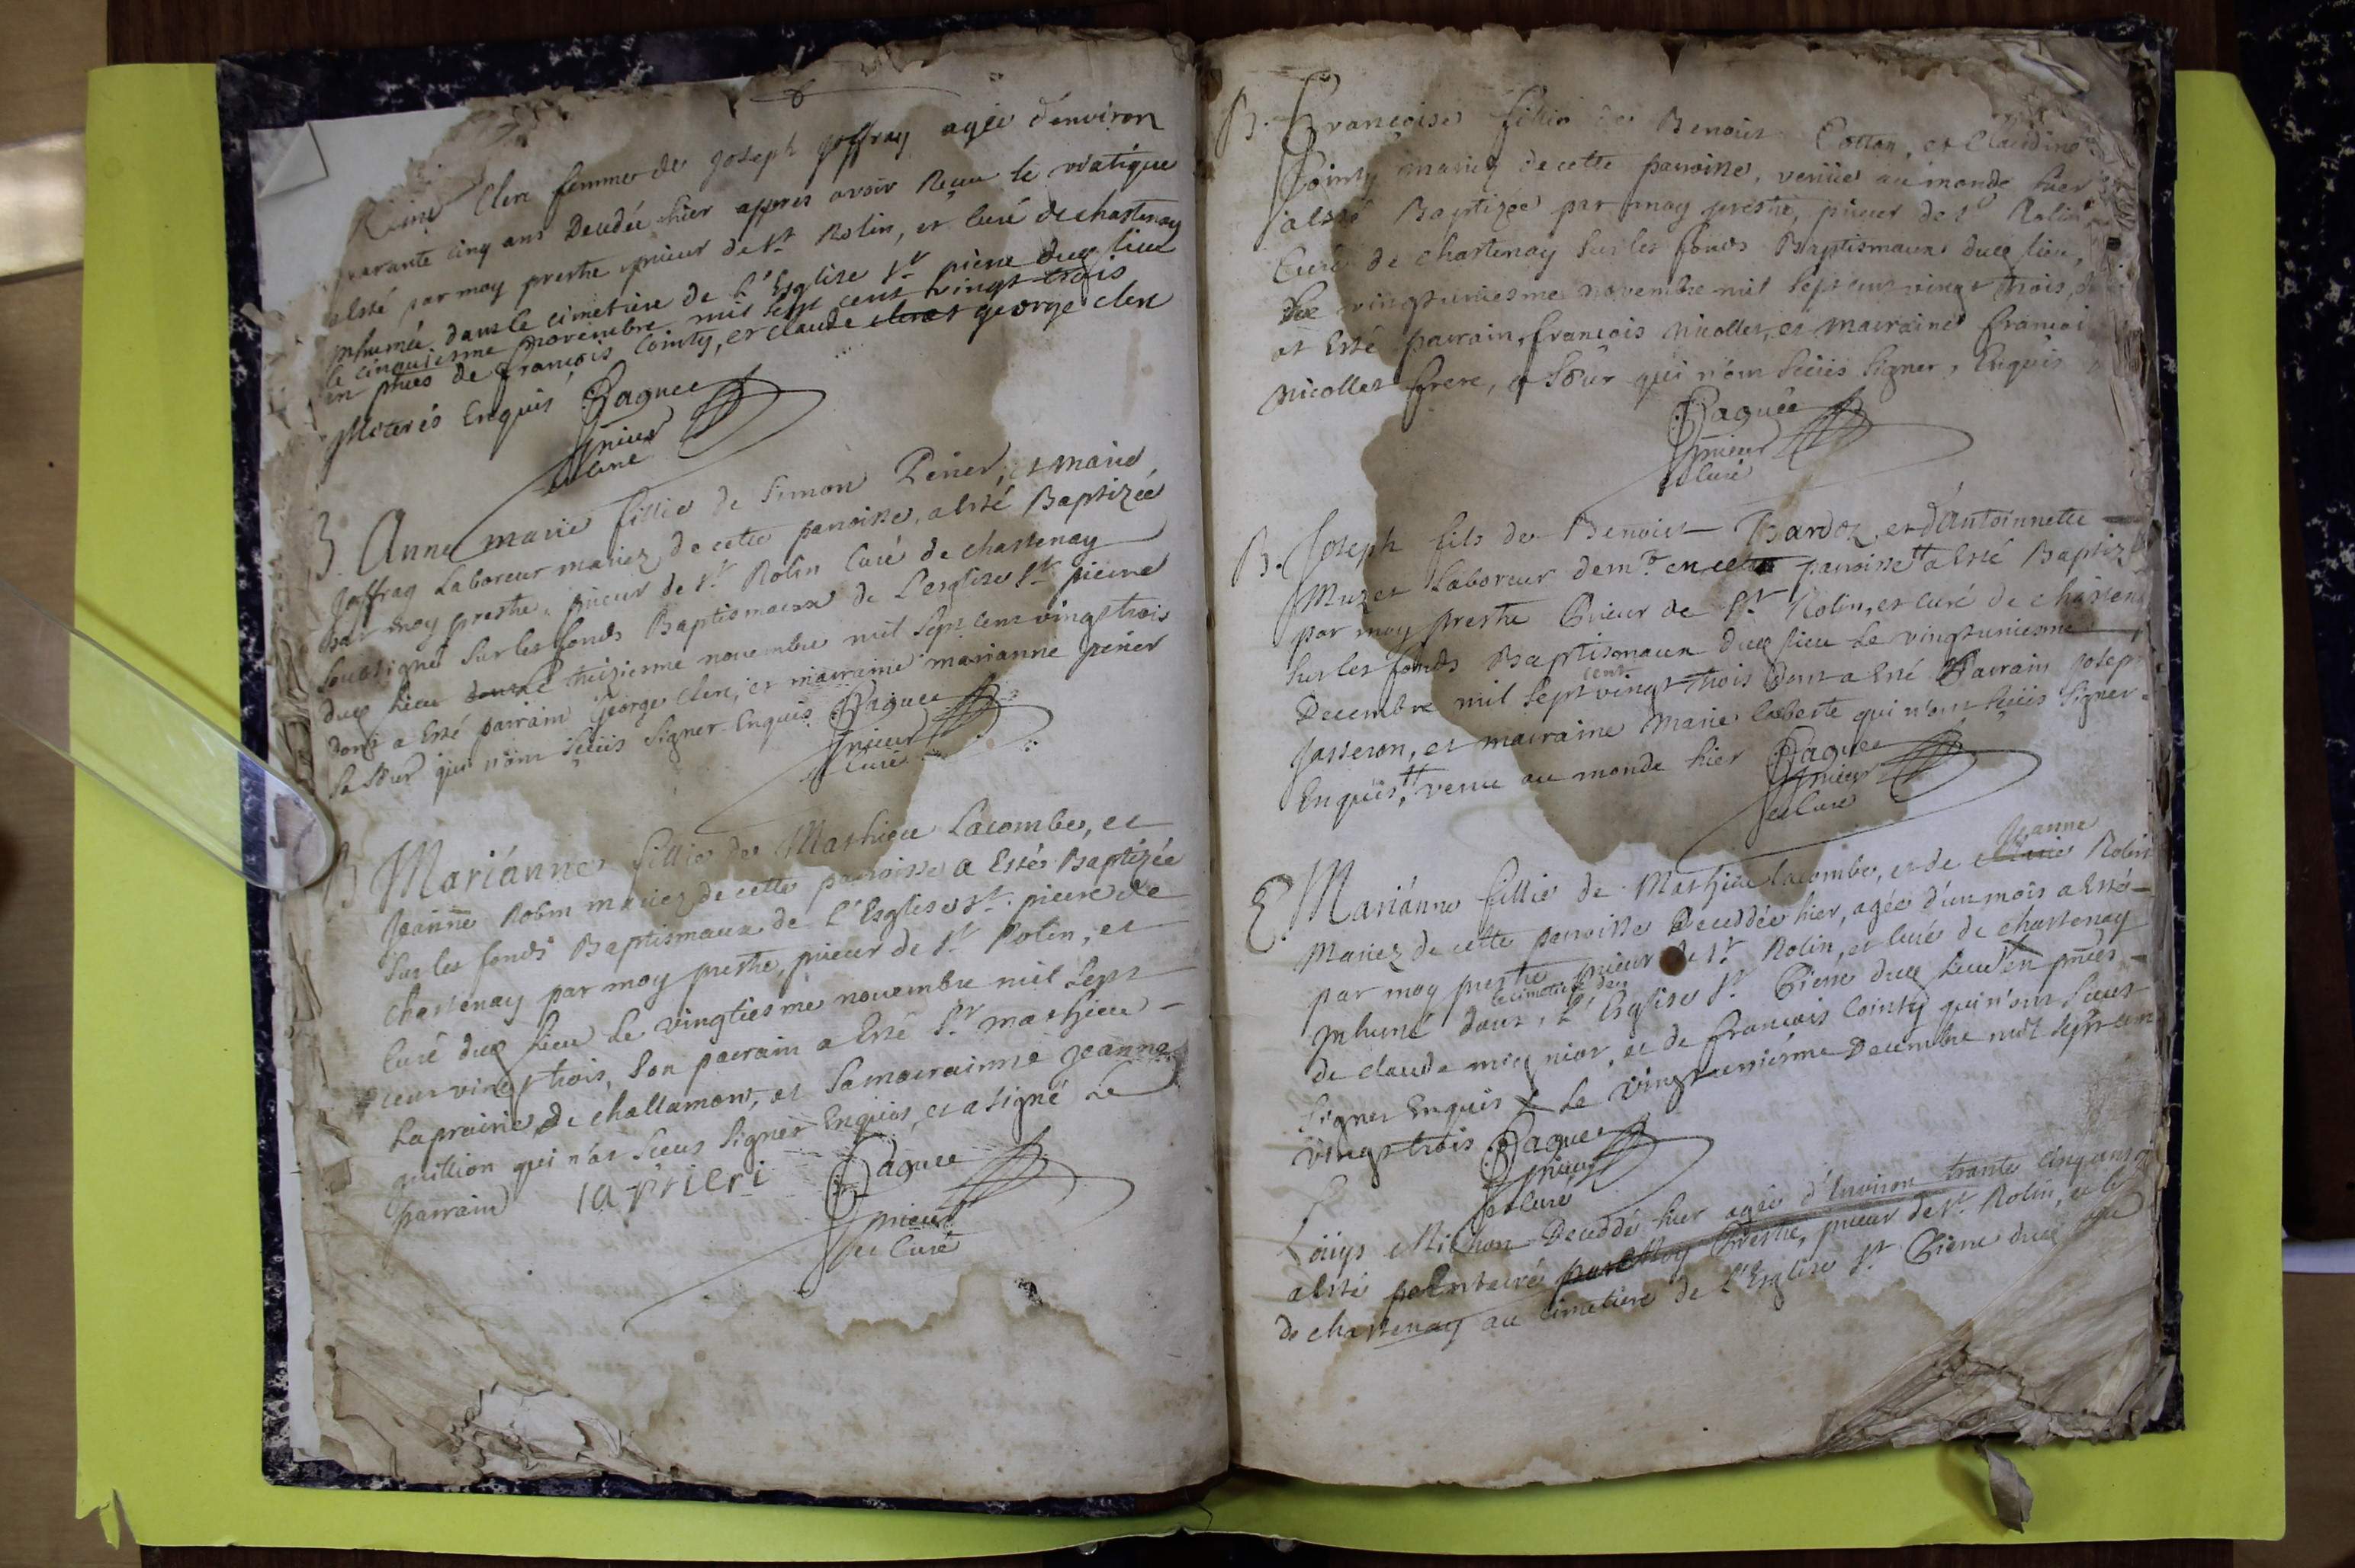 6
Reine Clerc femme de Joseph Joffray agée d'environ
quarante cinq ans Decedée hier apprés avoir Reçeu le viatique
a esté par moy prestre prieur de St Rolin, et Curé de chastenay
Inhumée dans le cimetiere de l'Esglise St pierre dud lieu
le cinquiesme novembre mil sept cent vingt trois
en pñces de françois Cointy, et claude george clerc
Illiterés Enquis Paquee
prieur
et Curé
B. Anne marie fillie de Simon Perier, et marie
Joffray Laboreur mariez de cette parroisse, a esté Baptizée
par moy prestre, prieur de St Rolin Curé de chastenay
soubsigné sur les fonds Baptismaux de L'esglise St pierre
dud lieu le treiziesme novembre mil sept cent vingt trois
dont a Esté parrain George Clerc, et marraine marianne perier
sa sœur qui n'ont sceüs signer Enquis Paquee
prieur
et Curé
B Mariánne fillie de Mathieu Lacombe, et
Jeanne Robin mariez de cette parroisse a Esté Baptizée
sur les fonds Baptismaux de l'Esglise St. pierre de
chastenay par moy prestre, prieur de St Rolin, et
Curé dud lieu Le vingtiesme novembre mil sept
cent vingt trois, son parrain a Esté Sr mathieu
Laprairie, de challamont, et sa marrainne Jeanne
quillion qui n'at sceus signer Enquise, et a signé le
parrain laprieri Paquee
prieur
et Curé
B. Francoise fillie de Benoist Cottan, et Claudine
Cointy mariez de cette parroisse, venüe au monde hier
a esté Baptizée par moy prestre, prieur de St Rolin
Curé de chastenay sur les fonds Baptismaux dud lieu,
Le vingtuniesme novembre mil sept cent vingt trois,
at Esté parrain, francois nicollet, et marraine francoi
nicollet frere, et sœur qui n'ont sceüs signer, Enquis
Paquee
prieur
et Curé
B. Joseph fils de Benoist Bardoz, et d'Antoinnette
Muzet Laboreur demt en cette parroisse tt a Esté Baptizé
par moy prestre Prieur de St Rolin, et curé de chasten
sur les fonds Baptismaux dud lieu Le vingtuniesme
Decembre mil sept cent vingt trois dont a Esté Parrain Josep
Jasseron, et marraine Marie Laberte qui n'ont sceüs signer
Enquis, tt venu au monde hier Paquee
prieur
et Curé
E. Mariánne fillie de Mathieu Lacombe, et de Jeanne Robin
Mariez de cette parroisse Deceddée hier, agée d'un mois a Esté
par moy prestre prieur de St Rolin, et Curé de chastenay
Inhumé dans le cimetiere de l'Esglise St Pierre dud Lieu en pñces
de claude mig nior, et de francois Cointy qui n'ont sceus
signer Enquis Le vingtuniéme Decembre mil sept cen
vingt trois Paquee
prieur
et Curé
Loüys Michon Deceddé hier agée d'Environ trante cinq ans
a esté par Moy Prestre, prieur de St. Rolin, et C
de chastenay au cimetiere de l'Esglise St Pierre dud